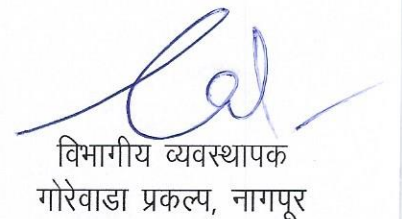 विभागीय व्यवस्थापक
गोरेवाडा प्रकल्प, नागपूर